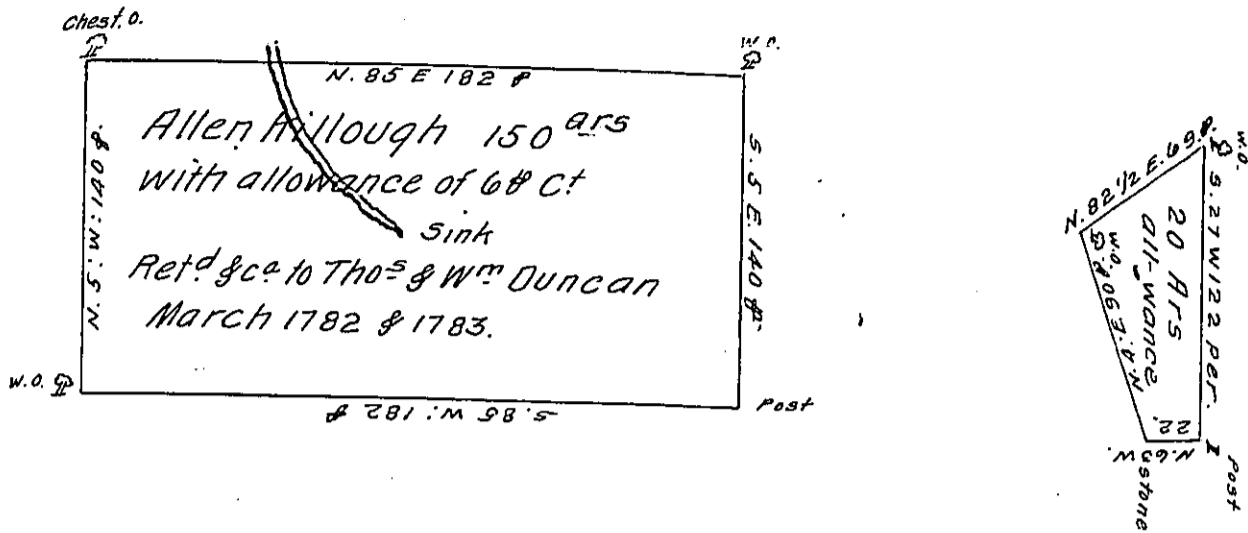 Chest. O.
W.O.
N. 85 E 182 p
Allen Killough 150 ars
with allowance of 6 p Ct
Sink
Retd &ca to Thos & Wm Duncan
March 1782 & 1783.
N. 5 W: 140 p.
S. 5 E. 140 p.
W.O.
S. 85 W: 182 p
Post
W.O.
N. 82 1/2 E. 69 p.
S. 27 W 122 per.
20 Ars
all-wance
W.O.
N. 4. E 90 p.
22.
N. 63 W.
stone
Post